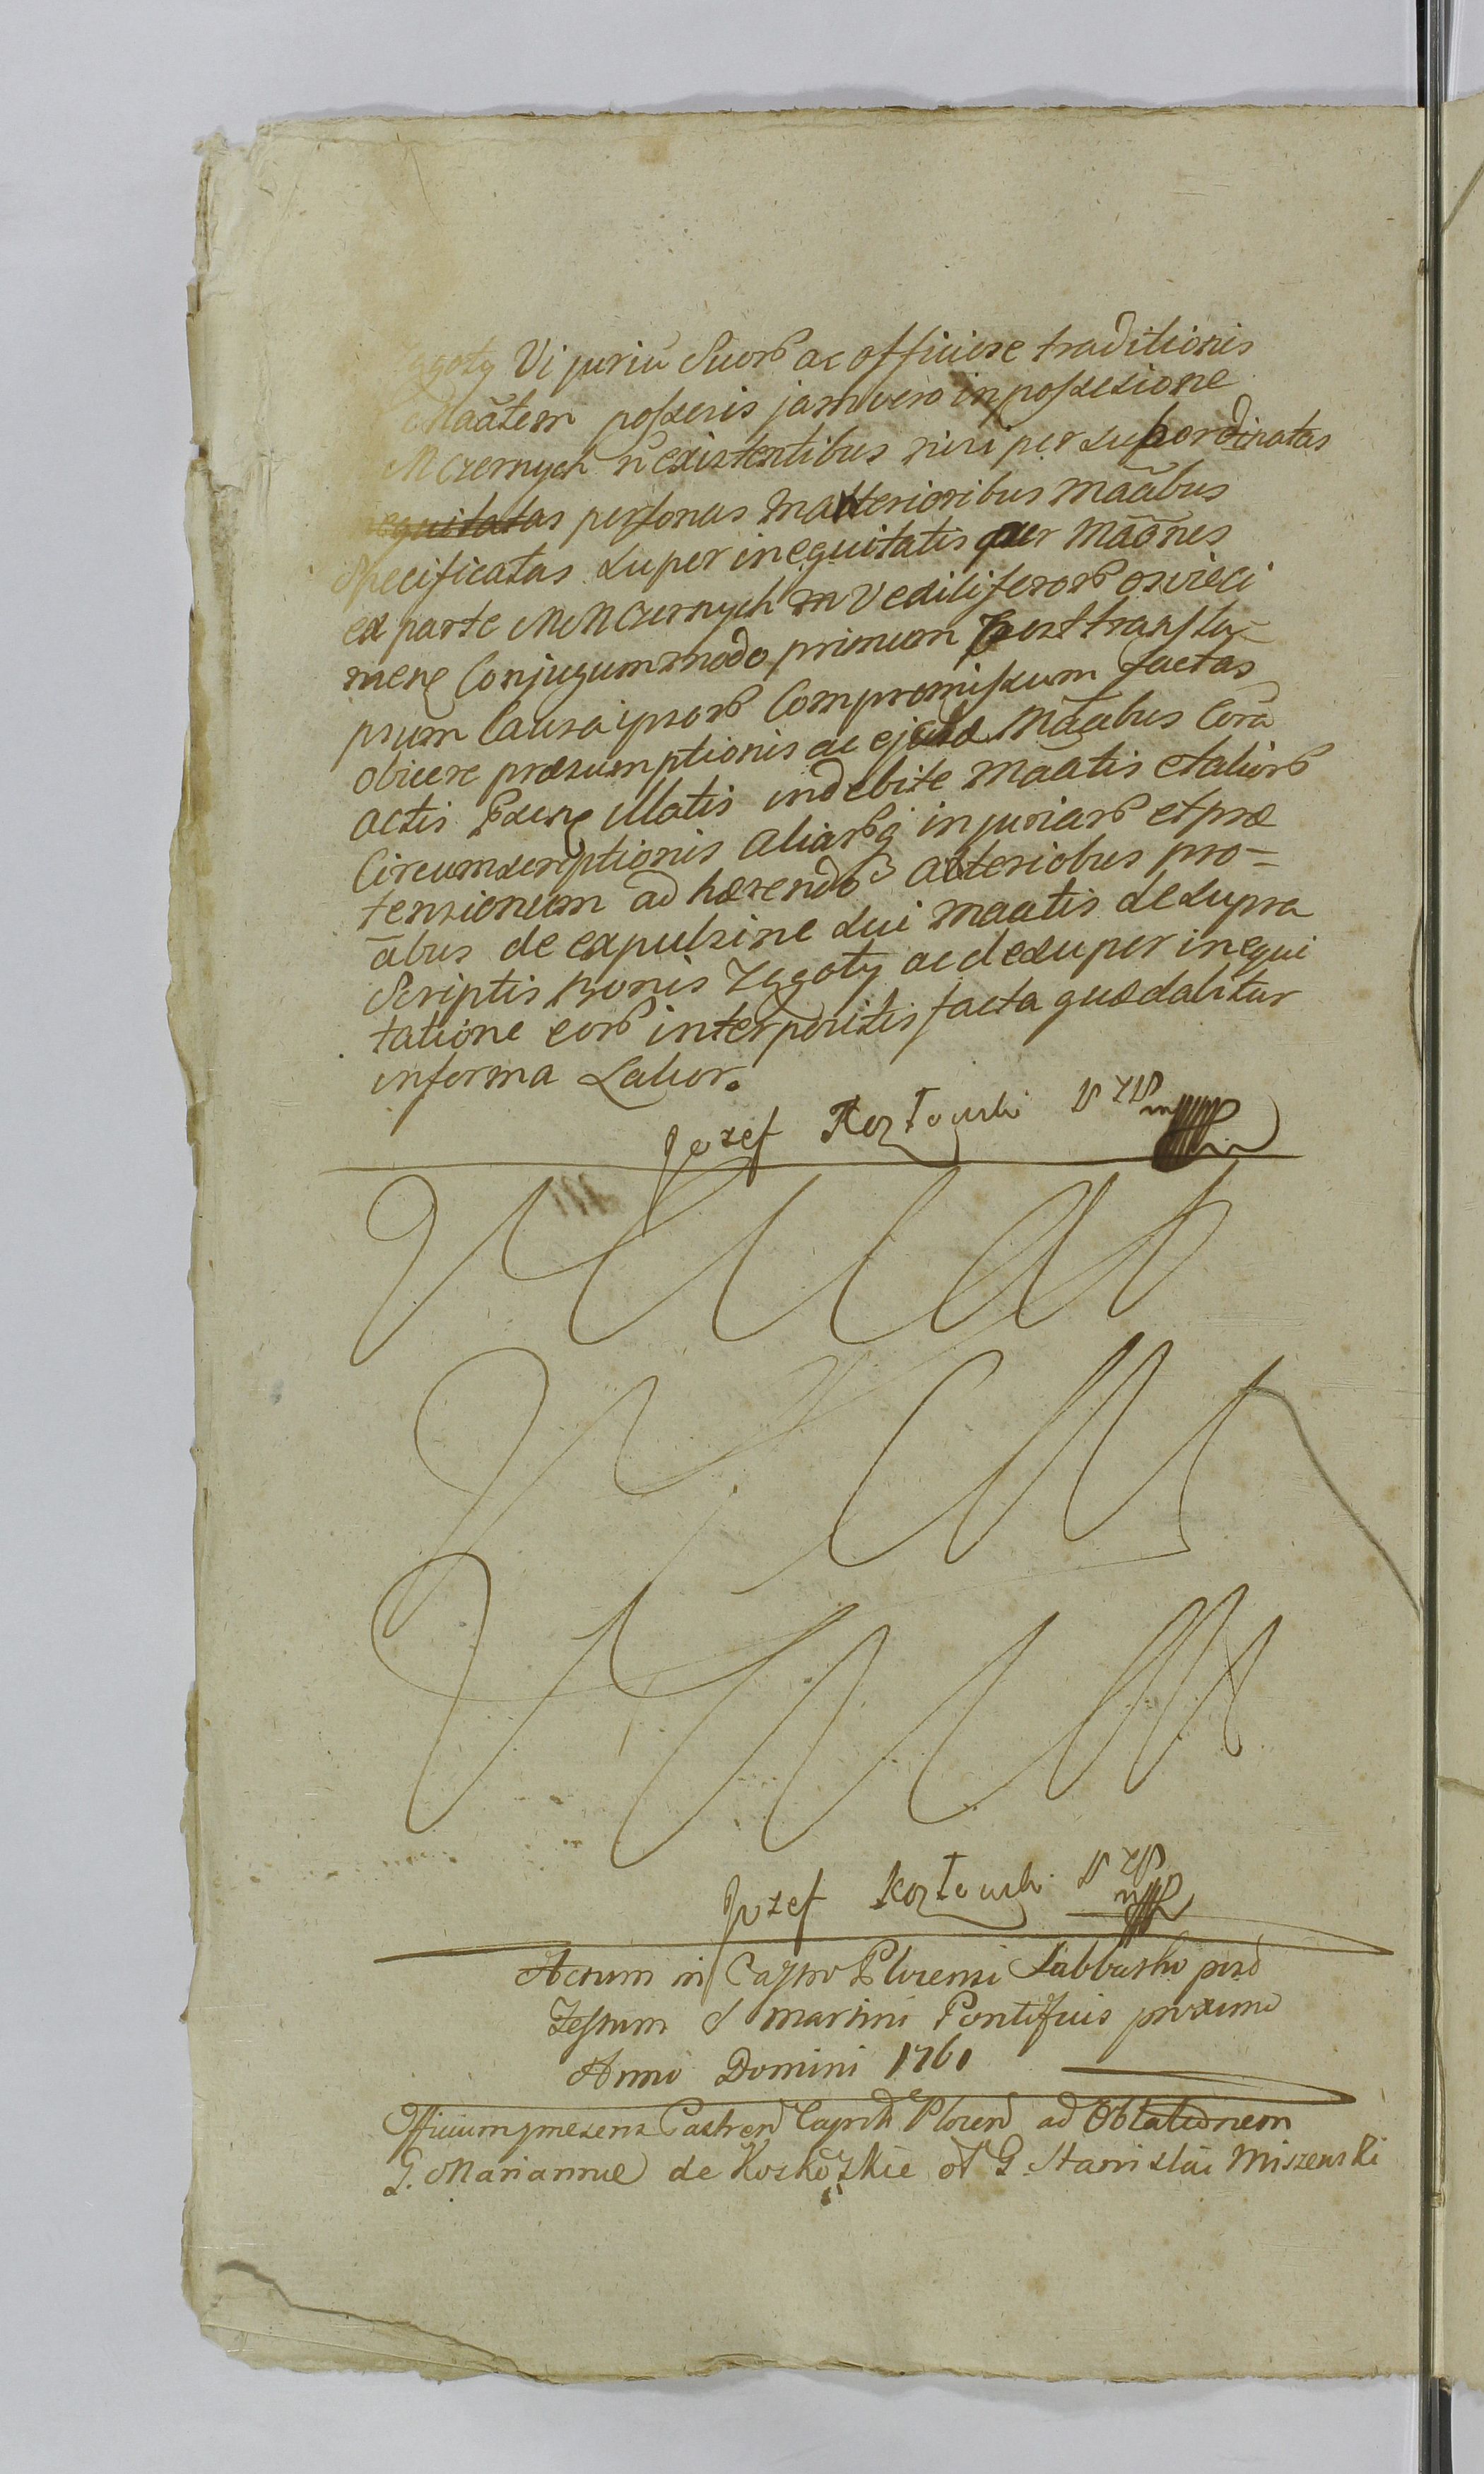 Zągoty Vi juriū Suorb ac officiose traditionis
Maātem possesis jam vero in possesione
MCzernych n̄ existentibus nisi per subordinatas
inequitatas personas matterioribus Maābus
Specificatas super inequitatis per Māones
ex parte MMCzernych in V ediliferorb osvieci
mens Conjugum modo primum post transla-
psum Causa ipsorb Compromissum factas
obicere præsumptionis ac ejusd Māabus Corā
actis Pxens illatis indebite Maatis etaliorb
Circumscriptionis aliarbq injuriarb et præ
tensionum ad hærendo acteriobus pro-
ābus de expulsine sui maatis de supra
Scriptis bonis Zągoty ac de super inequi
tatione eorb interpositis facta quædabitur
in forma Latior.
Jozef Kozłowski
Jozef Kozłowski
Actum in Castro Plocensi Sabbatho post
Festum S Martini Pontificis proximo
Anno Domini 1760
Officium præsens Castren Capitle Plocen ad Oblationem
G. Mariannæ de Koskoskie et G. Stanislai Miszewski